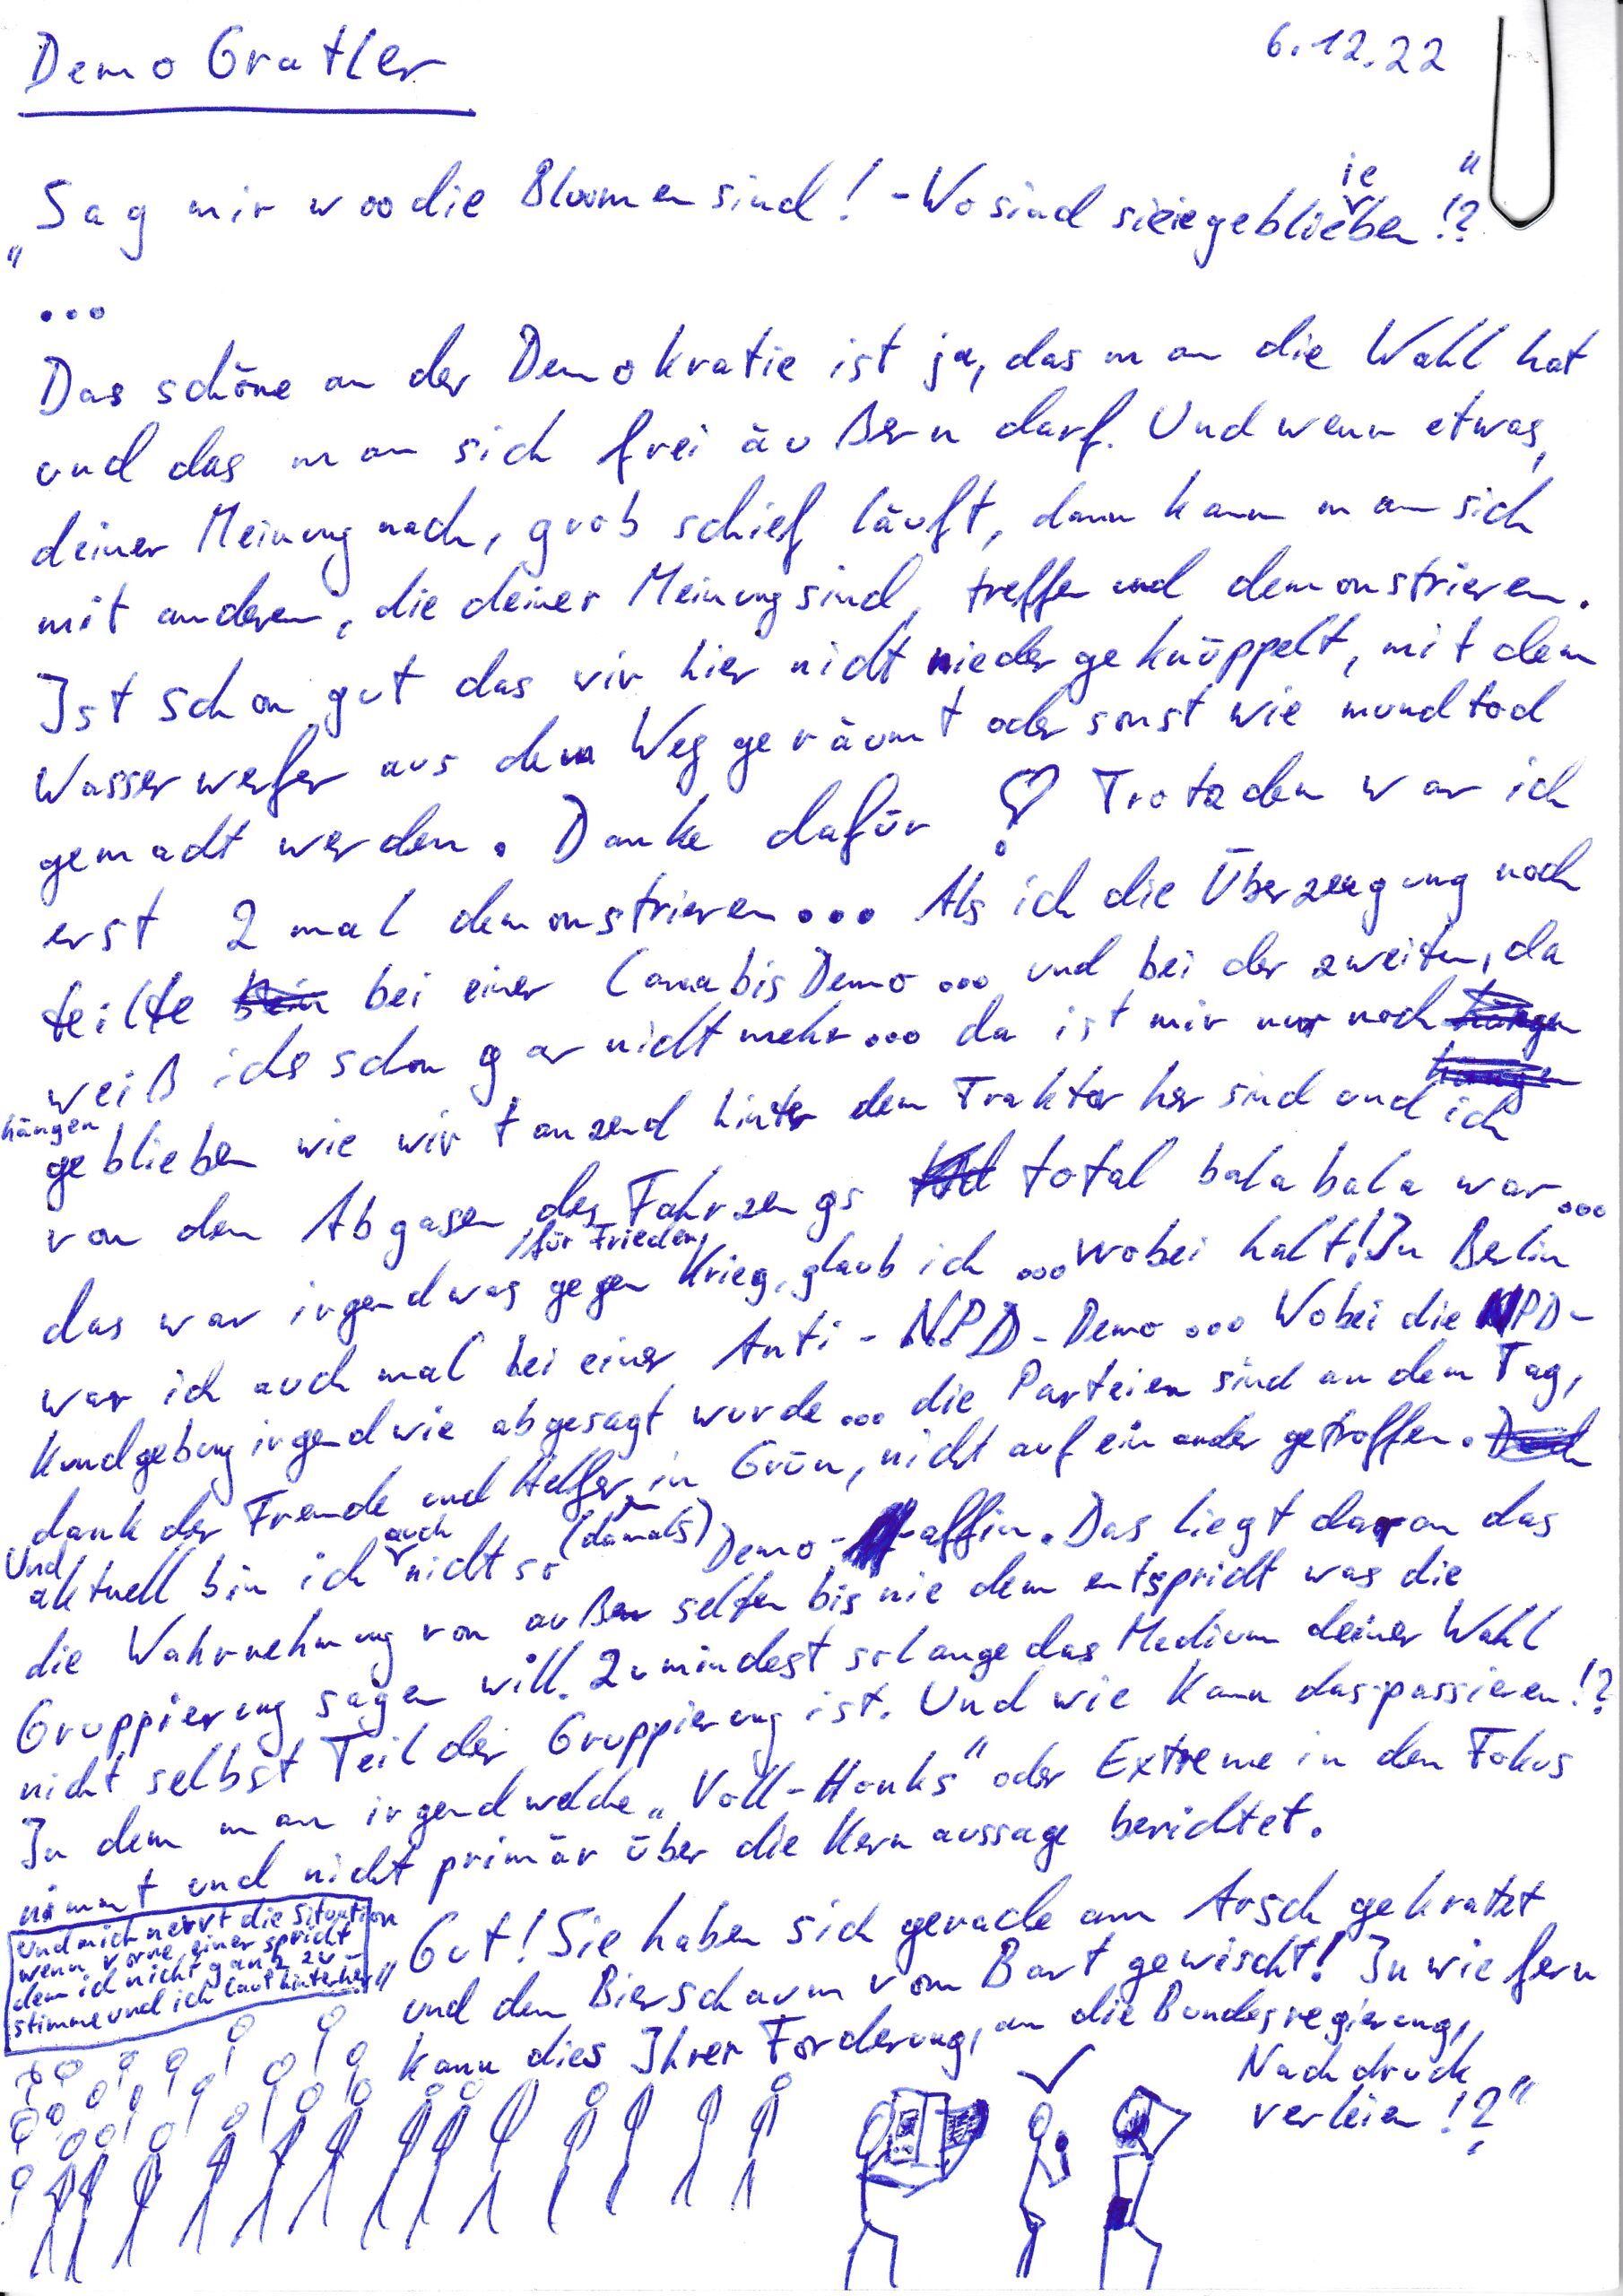 Demo Gratler
6.12.22
„Sag mir woodie Bloomen sind! - Wo sind sieiegebliieeben!?"
...
Das schöne an der Demokratie ist ja, das man die Wahl hat
und das man sich frei äußern darf. Und wenn etwas,
deiner Meinung nach, grob schief läuft, dann kann man sich
mit anderen, die deiner Meinung sind, treffen und demonstrieren.
Ist schon gut das wir hier nicht niedergeknüppelt, mit dem
Wasserwerfer aus dem Weg geräumt oder sonst wie mundtod
gemacht werden. Danke dafür ♡ Trotzdem war ich
erst 2 mal demonstrieren... Als ich die Überzeugung noch
teilte bei einer Cannabis Demo... und bei der zweiten, da
weiß ichs schon gar nicht mehr... da ist mir nur noch
hängen
geblieben wie wir tanzend hinter dem Traktor her sind und ich
von den Abgasen des Fahrzeugs total balabala war...
das war irgendwas gegen Krieg, /für Frieden, glaub ich ...wobei halt! In Berlin
war ich auch mal bei einer Anti-NPD-Demo... Wobei die NPD-
Kundgebung irgendwie abgesagt wurde... die Parteien sind an dem Tag,
dank der Freunde und Helfer in Grün, (damals) nicht aufeinander getroffen.
Und aktuell bin ich auch nicht so Demo-affin. Das liegt daran das
die Wahrnehmung von außen selten bis nie dem entspricht was die
Gruppierung sagen will. Zumindest solange das Medium deiner Wahl
nicht selbst Teil der Gruppierung ist. Und wie kann das passieren!?
In dem man irgendwelche „Voll-Honks" oder Extreme in den Fokus
nimmt und nicht primär über die Kernaussage berichtet.
Und mich nervt die Situation
wenn vorne einer spricht
dem ich nicht ganz zu-
stimme und ich lauf hinterher
„Gut! Sie haben sich gerade am Arsch gekratzt
und den Bierschaum vom Bart gewischt! In wie fern
kann dies Ihrer Forderung, an die Bundesregierung,
Nachdruck
verleien!?"